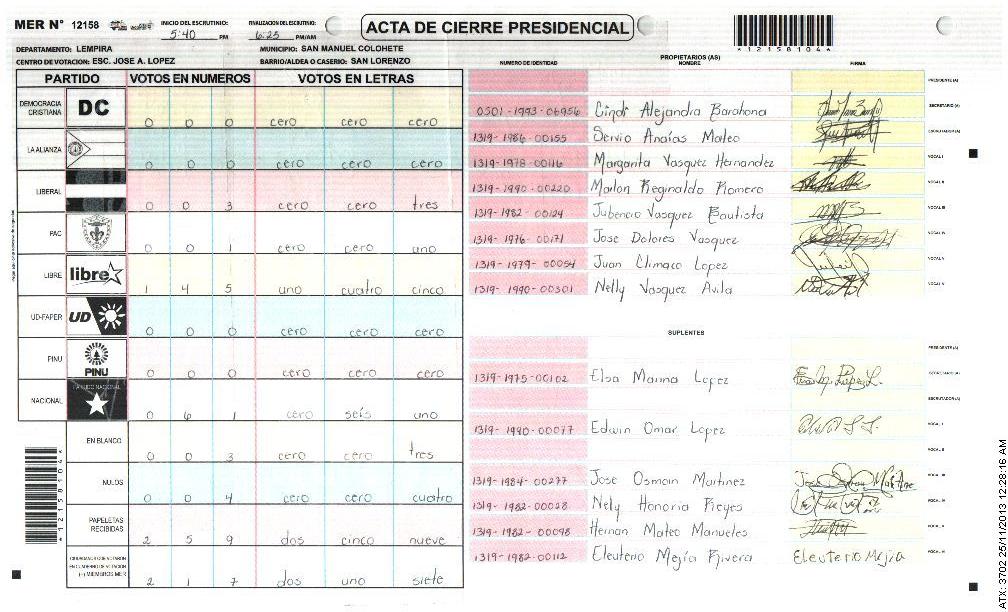 MER N° 12158
INICIO DEL ESCRUTINIO:
5:40 PM
FINALIZACION DEL ESCRUTINIO:
6:25 PM/AM
ACTA DE CIERRE PRESIDENCIAL
*12158104*
DEPARTAMENTO: LEMPIRA
MUNICIPIO: SAN MANUEL COLOHETE
CENTRO DE VOTACION: ESC. JOSE A. LOPEZ
BARRIO/ALDEA O CASERIO: SAN LORENZO
PARTIDO VOTOS EN NUMEROS VOTOS EN LETRAS
DEMOCRACIA CRISTIANA DC 0 0 0 cero cero cero
LA ALIANZA 0 0 0 cero cero cero
LIBERAL 0 0 3 cero cero tres
PAC 0 0 1 cero cero uno
LIBRE libre 1 4 5 uno cuatro cinco
UD-FAPER UD 0 0 0 cero cero cero
PINU PINU 0 0 0 cero cero cero
NACIONAL PARTIDO NACIONAL 0 6 1 cero seis uno
EN BLANCO 0 0 3 cero cero tres
NULOS 0 0 4 cero cero cuatro
PAPELETAS RECIBIDAS 2 5 9 dos cinco nueve
CIUDADANOS QUE VOTARON EN CUADERNO DE VOTACION (+) MIEMBROS MER 2 1 7 dos uno siete
*12158104*
PROPIETARIOS (AS)
NUMERO DE IDENTIDAD NOMBRE FIRMA
PRESIDENTE (A)
0501-1993-06956 Cindi Alejandra Barahona SECRETARIO (A)
1319-1986-00155 Servio Ananías Mateo ESCRUTADOR (A)
1319-1978-00116 Margarita Vasquez Hernandez VOCAL I
1319-1990-00220 Marlon Reginaldo Romero VOCAL II
1319-1982-00124 Jubencio Vasquez Bautista VOCAL III
1319-1976-00171 Jose Dolores Vasquez VOCAL IV
1319-1979-00054 Juan Climaco Lopez VOCAL V
1319-1990-00301 Nelly Vasquez Avila VOCAL V
SUPLENTES
PRESIDENTE (A)
1319-1975-00102 Elsa Marina Lopez SECRETARIO (A)
ESCRUTADOR (A)
1319-1990-00077 Edwin Omar Lopez VOCAL I
VOCAL II
1319-1984-00277 Jose Osmain Martinez VOCAL III
1319-1982-00028 Nely Honoria Reyes VOCAL IV
1319-1982-00098 Hernan Mateo Manueles VOCAL V
1319-1982-00112 Eleuterio Mejía Rivera Eleuterio Mejia VOCAL VI
ATX: 3702 25/11/2013 12:28:16 AM